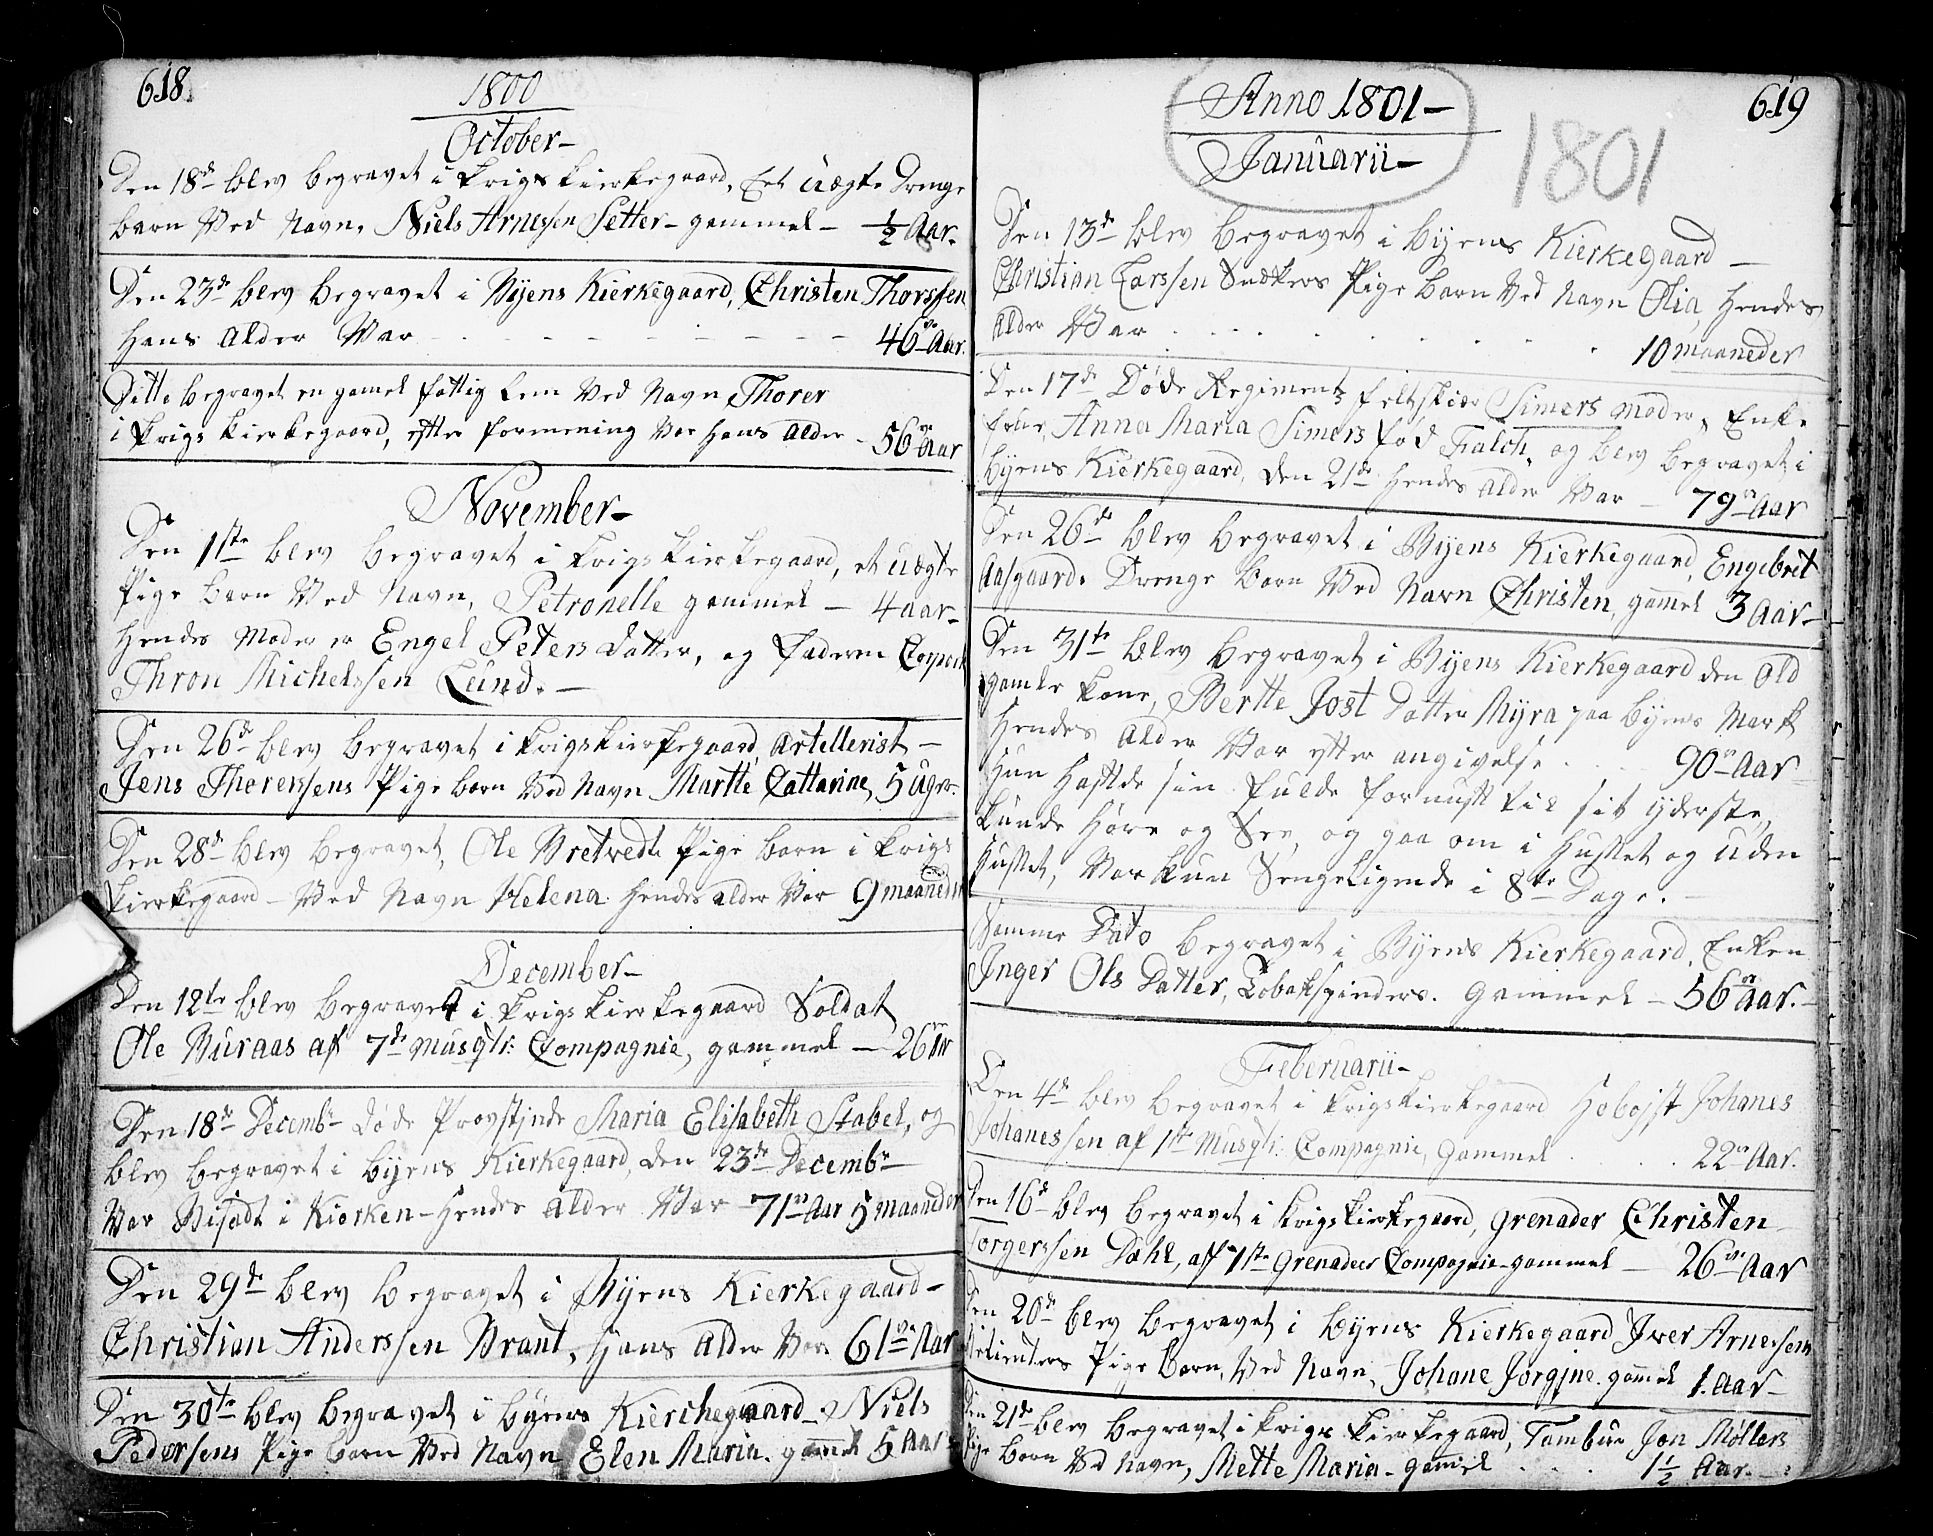 618.
1800
October-
Den 18de blev begravet i krigs kierkegaard, Eet Uægte Drenge
barn Ved Navn, Niels Arnessen Setter- gammel - ½ Aar.
Den 23de blev begravet i Byens Kierkegaard, Christen Thorssen
Hans Alder Var - - - - - - - 46ve Aar.
Ditto begravet en gamel fattig Lem Ved Navn Thorer
i krigs kierkegaard, efter formening Var Hans Alder - 56ve Aar
November-
Den 1ste blev begravet i krigs kierkegaard, et Uægte
Pige barn Ved Navn, Petronelle gammel - 4 aar-
Hendes Moder er Engel Peters datter, og faderen Corporl
Thron Michelssen Lund. -
Den 26de blev begravet i krigskierkegaard, Artellerist -
Jens Thorerssens Pige barn Ved Navn Martte Cattarine, 5 uger.
Den 28de blev begravet, Ole Bretvedt Pige barn i krigs
kierkegaard - Ved Navn Helena. Hendes alder Var 9 maaneder
December-
Den 12te blev begravet i krigs kierkegaard Soldat
Ole Buraas af 7de musqtr: Compagnie, gammel - 26ve Aar
Den 18de Decembr døde Provstinde Maria Elisabeth Stabel, og
blev begravet i byens Kierkegaard, den 23de Decembr
Var Bisadt i Kierken - Hendes Alder Var - 71ve Aar 5 maaneder
Den 29de blev begravet i Byens Kierkegaard -
Christian Anderssen Brant, Hans Alder Var 61ve Aar
Den 30te blev begravet i byens Kierchegaard -. Niels
Pedersens Pige barn Ved Navn Elen Maria. gamel 5 Aar
Anno 1801-
Januarii-
1801
619
Den 13de blev begravet i byens Kierkegaard -
Christian Larssen Snedkers Pige barn Ved Navn Olia, Hendes
Alder Var . . . . . . . . 10 maaneder
Den 17de Døde Regiments feltskiær Simers moder, Enke
frue, Anna Maria Simers fød Falch, og blev begravet i
byens Kierkegaard, den 21de Hendes Alder Var - 79ve Aar
Den 26de blev begravet i Byens Kierkegaard, Engebret
Aasgaards Drenge barn Ved Navn Christen, gamel 3 Aar-
Den 31te blev begravet i Byens Kierkegaard den old
gamle kone, Bertte Jost Datter Myra paa byens Mark
Hendes Alder Var efter angivelse . . . 90ve Aar
Hun Hafde sin fulde fornuft til sit yderste,
kunde Høre og See, og gaa om i Huset og uden
Huset, Var kun Sengeligende i 8te Dage. -
Samme Dato begravet i Byens Kierkegaard, Enken
Inger Ols Datter, Tobakspinders. gammel - 56ve Aar. -
Februarii-
Den 4de blev begravet i krigskierkegaard Hoboist Johanes
Johanessen af 1ste Musqtr: Compagnie, gammel . . . . 22ve Aar.
Den 16de blev begravet i krigskierkegaard, grenader Christen
Torgerssen Dahl, af 1ste Grenadeer Compagnie - gammel - 26ve Aar
Den 20de blev begravet i byens Kierkegaard Iver Arnessen
Pige barn, Ved Navn, Johane Jorgine. gamel 1. Aar-
Den 21de blev begravet i krigs kierkegaard, Tambur Jon Møllers
Pige barn Ved Navn, Mette Maria - gamel . . . 1½ Aar. -